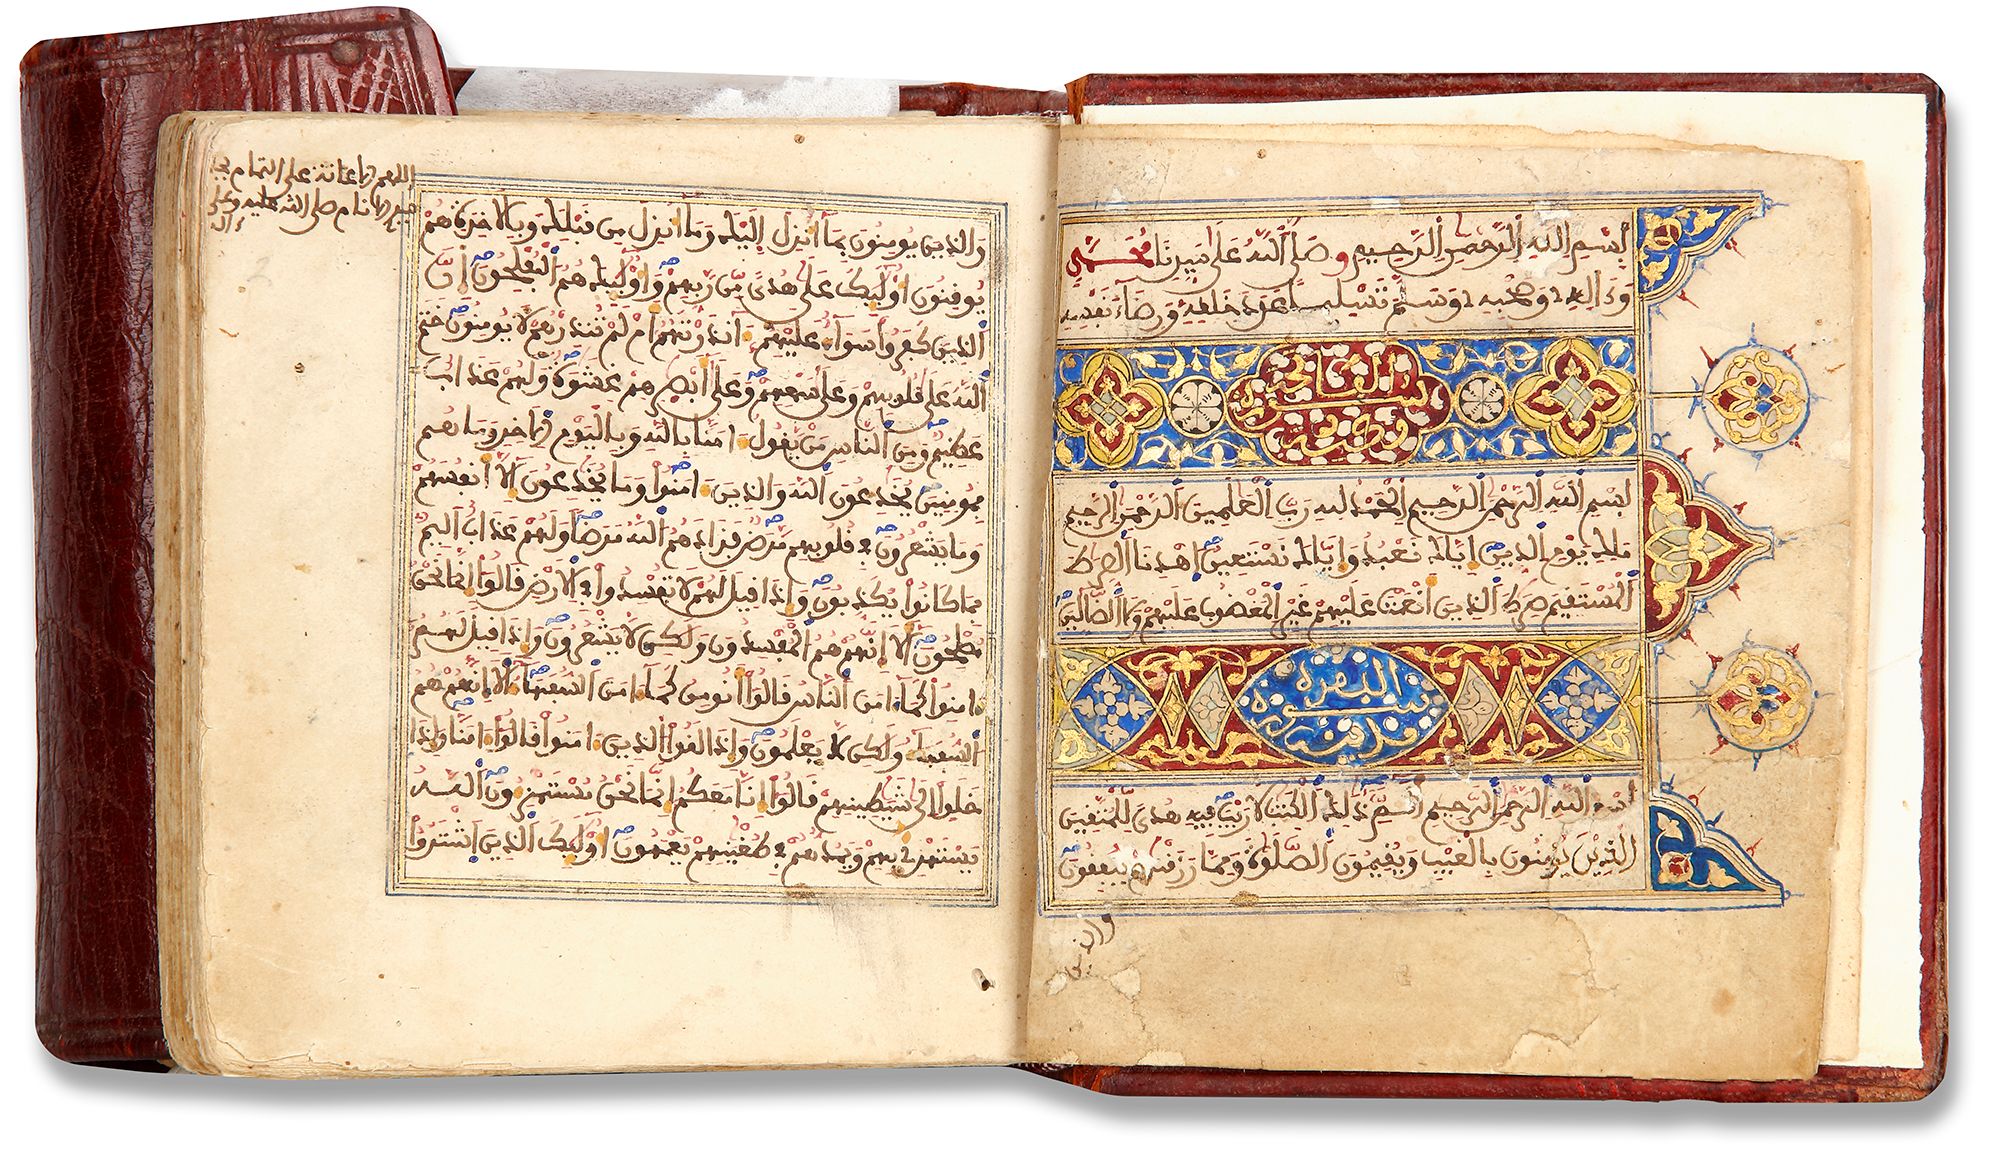 بسم الله الرحمن الرحيم وصلى الله على سيدنا محمد
وءاله وصحبه وسلم تسليما عدد خلقه ورضاء نفسه
سورة الفاتحة
بسم الله الرحمن الرحيم الحمد لله رب العلمين الرحمن الرحيم
ملك يوم الدين إياك نعبد وإياك نستعين اهدنا الصرط
المستقيم صرط الذين أنعمت عليهم غير المغضوب عليهم ولا الضالين
سورة البقرة مدنية
بسم الله الرحمن الرحيم الم ذلك الكتب لا ريب فيه هدى للمتقين
الذين يومنون بالغيب ويقيمون الصلوة ومما رزقنهم ينفقون
والذين
اللهم الإعانة على التمام
خير الأنام صلى الله عليه وعلى
ءاله
والذين يومنون بما أنزل إليك وما أنزل من قبلك وبالاخرة هم
يوقنون أوليك على هدى من ربهم وأوليك هم المفلحون إن
الذين كفروا سواء عليهم ءانذرتهم أم لم تنذرهم لا يومنون ختم
الله على قلوبهم وعلى سمعهم وعلى أبصرهم غشوة ولهم عذاب
عظيم ومن الناس من يقول ءامنا بالله وباليوم الاخر وما هم
بمومنين يخدعون الله والذين ءامنوا وما يخدعون إلا أنفسهم
وما يشعرون في قلوبهم مرض فزادهم الله مرضا ولهم عذاب أليم
بما كانوا يكذبون وإذا قيل لهم لا تفسدوا في الارض قالوا إنما نحن
مصلحون ألا إنهم هم المفسدون ولكن لا يشعرون وإذا قيل لهم
ءامنوا كما ءامن الناس قالوا أنومن كما ءامن السفهاء ألا إنهم هم
السفهاء ولكن لا يعلمون وإذا لقوا الذين ءامنوا قالوا ءامنا وإذا
خلوا إلى شيطينهم قالوا إنا معكم إنما نحن مستهزءون الله
يستهزئ بهم ويمدهم في طغينهم يعمهون أوليك الذين اشتروا